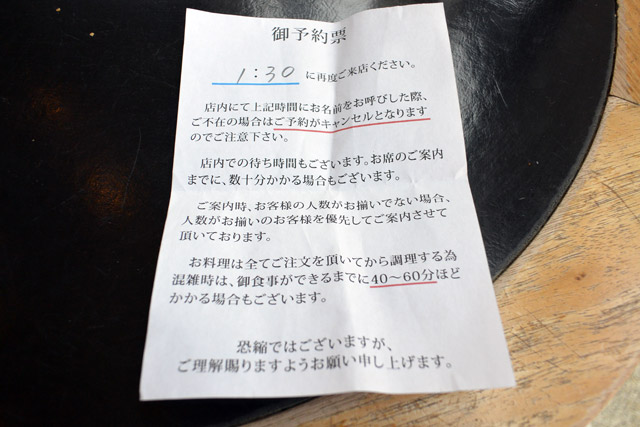 御予約票
1:30 に再度ご来店ください。
店内にて上記時間にお名前をお呼びした際、
ご不在の場合はご予約がキャンセルとなります
のでご注意下さい。
店内での待ち時間もございます。お席のご案内
までに、数十分かかる場合もございます。
ご案内時、お客様の人数がお揃いでない場合、
人数がお揃いのお客様を優先してご案内させて
頂いております。
お料理は全てご注文を頂いてから調理する為
混雑時は、御食事ができるまでに40〜60分ほど
かかる場合もございます。
恐縮ではございますが、
ご理解賜りますようお願い申し上げます。